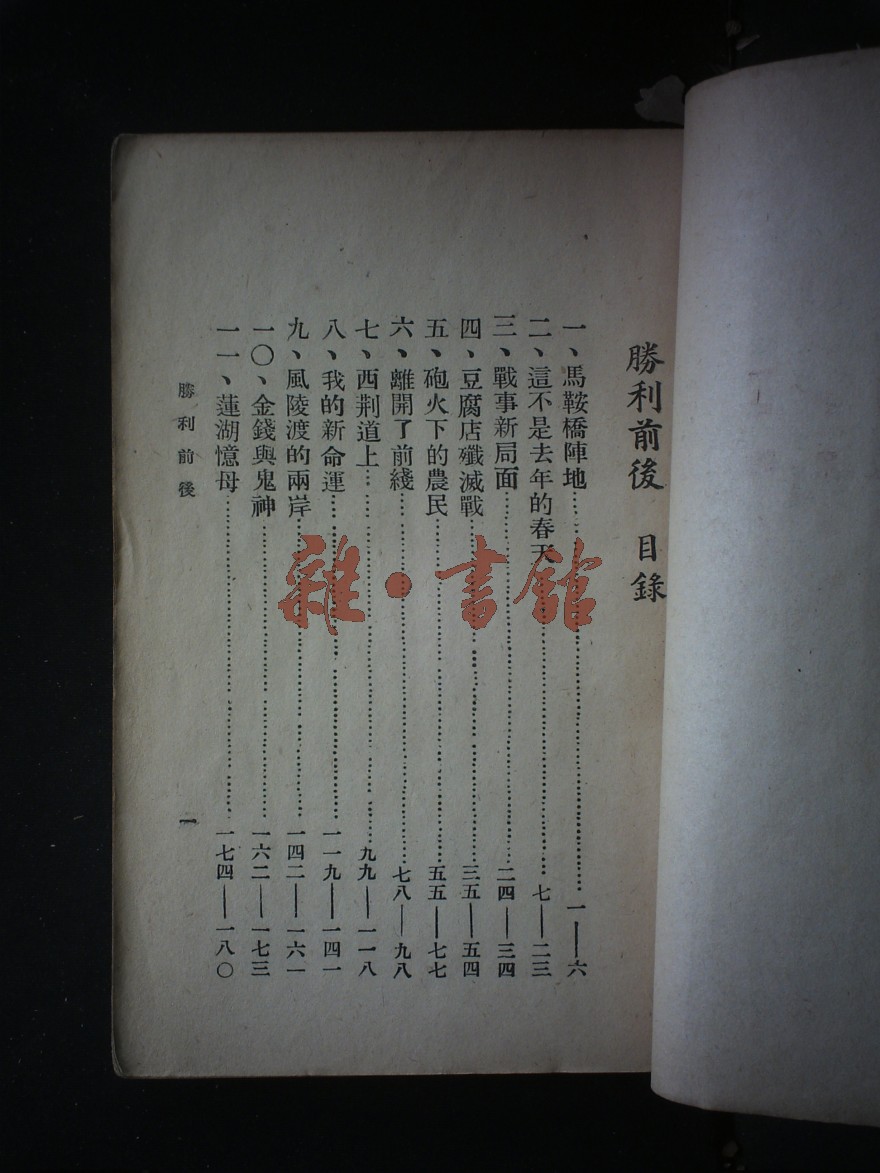 勝利前後 目錄
一、馬鞍橋陣地……一——六
二、這不是去年的春天……七——二三
三、戰事新局面……二四——三四
四、豆腐店殲滅戰……三五——五四
五、砲火下的農民……五五——七七
六、離開了前綫……七八——九八
七、西荆道上……九九——一一八
八、我的新命運……一一九——一四一
九、風陵渡的兩岸……一四二——一六一
一〇、金錢與鬼神……一六二——一七三
一一、蓮湖憶母……一七四——一八〇
勝利前後 一
雜·書館